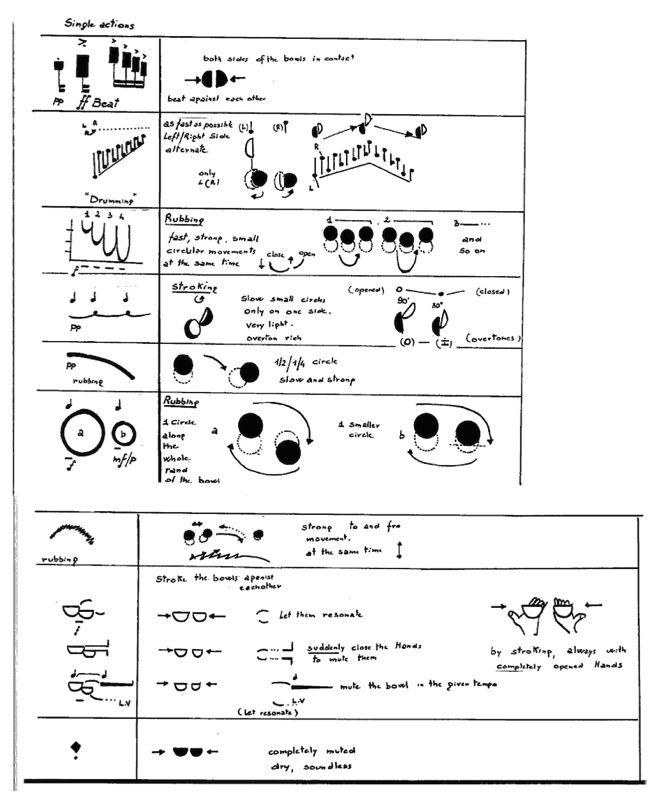 Single actions
both sides of the bowls in contact
pp ff Beat
beat against each other
L R
as fast as possible (L) (R)
Left/Right side
alternate
R
only
L(R)
L
"Drumming"
1 2 3 4
Rubbing
fast, strong, small
circular movements
at the same time
close open
1 2 3
and
so on
f
Stroking
Slow small circles
only on one side.
very light.
overton rich
(opened) (closed)
90° 30°
pp
(overtones)
pp
rubbing
1/2/1/4 circle
slow and strong
Rubbing
1 Circle
along
the
whole
rand
of the bowl
a b
f mf/p
a
1 smaller
circle
b
rubbing
strong to and fro
movement.
at the same time
Stroke the bowls against
eachother
Let them resonate
suddenly close the Hands
to mute them
by stroking, always with
completely opened Hands
mute the bowl in the given tempo
L.V
L.V
(Let resonate)
completely muted
dry, soundless